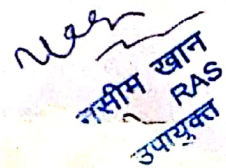 नसीम खान
RAS
उपायुक्त